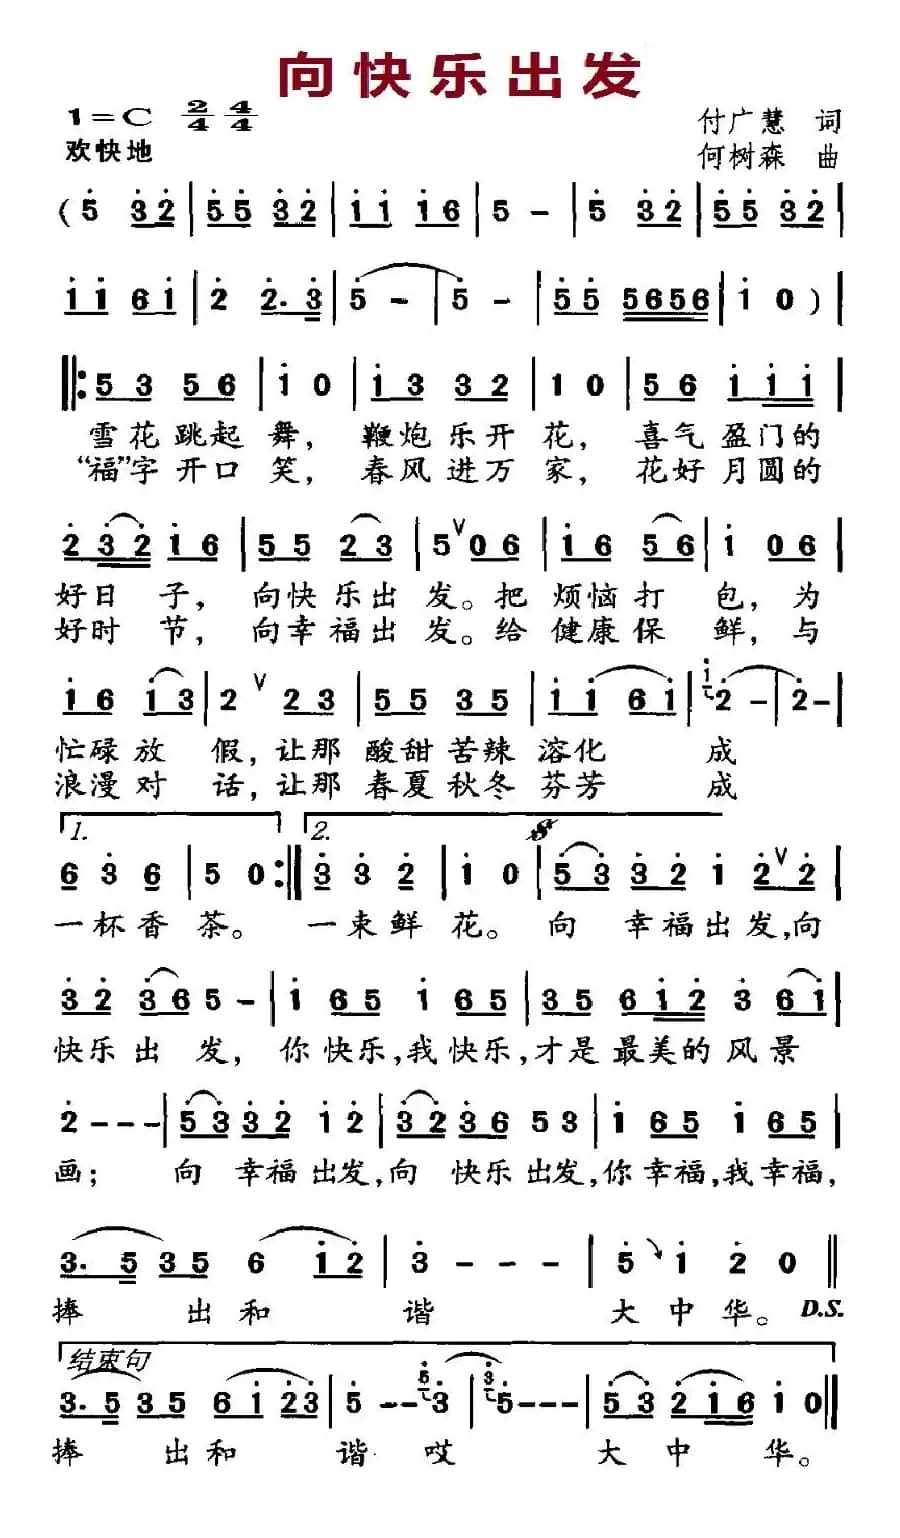 向快乐出发
1=C 2/4 4/4
付广慧 词
欢快地
何树森 曲
( 5 32 | 55 32 | 11 16 | 5 - | 5 32 | 55 32 |
11 61 | 2 2.3 | 5 - | 5 - | 55 5656 | 1 0 ) |
|: 53 56 | 1 0 | 13 32 | 1 0 | 56 111 |
雪花跳起舞，鞭炮乐开花，喜气盈门的
“福”字开口笑，春风进万家，花好月圆的
232 16 | 55 23 | 5 V 06 | 16 56 | 1 06 |
好日子，向快乐出发。把烦恼打包，为
好时节，向幸福出发。给健康保鲜，与
16 13 | 2 V 23 | 55 35 | 11 61 | 1 2 - | 2 - |
忙碌放假，让那酸甜苦辣溶化成
浪漫对话，让那春夏秋冬芬芳成
1. 2.
6 3 6 | 5 0 :| 3 3 2 | 1 0 | 53 32 1 2 V 2 |
一杯香茶。一束鲜花。向幸福出发，向
32 365 - | 1 65 1 65 | 35 612 3 61 |
快乐出发，你快乐，我快乐，才是最美的风景
2 - - - | 53 32 1 2 | 32 36 5 3 | 1 65 1 65 |
画；向幸福出发，向快乐出发，你幸福，我幸福，
3. 5 35 6 12 | 3 - - - | 5 1 2 0 ||
捧出和谐大中华。D.S.
结束句
3. 5 35 61 23 | 5 - - 5 3 | 3 5 - - - | 53 216 1 0 ||
捧出和谐哎大中华。